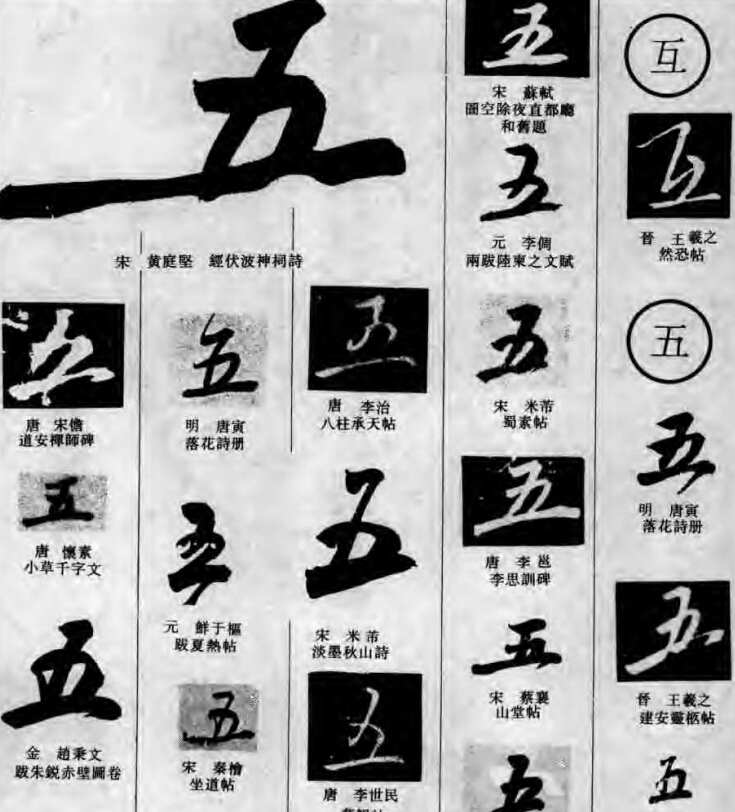 互
互
晉 王羲之
然恐帖
五
五
明 唐寅
落花詩册
五
晉 王羲之
建安靈柩帖
五
五
宋 蘇軾
圖空除夜直都廳
和舊題
五
元 李倜
兩跋陸柬之文賦
五
宋 米芾
蜀素帖
五
唐 李邕
李思訓碑
五
宋 蔡襄
山堂帖
五
五
宋 黄庭堅 經伏波神祠詩
五
唐 李治
八柱承天帖
五
宋 米芾
淡墨秋山詩
五
唐 李世民
五
明 唐寅
落花詩册
五
元 鮮于樞
跋夏熱帖
五
宋 秦檜
坐道帖
五
唐 宋儋
道安禪師碑
五
唐 懷素
小草千字文
五
金 趙秉文
跋朱鋭赤壁圖卷